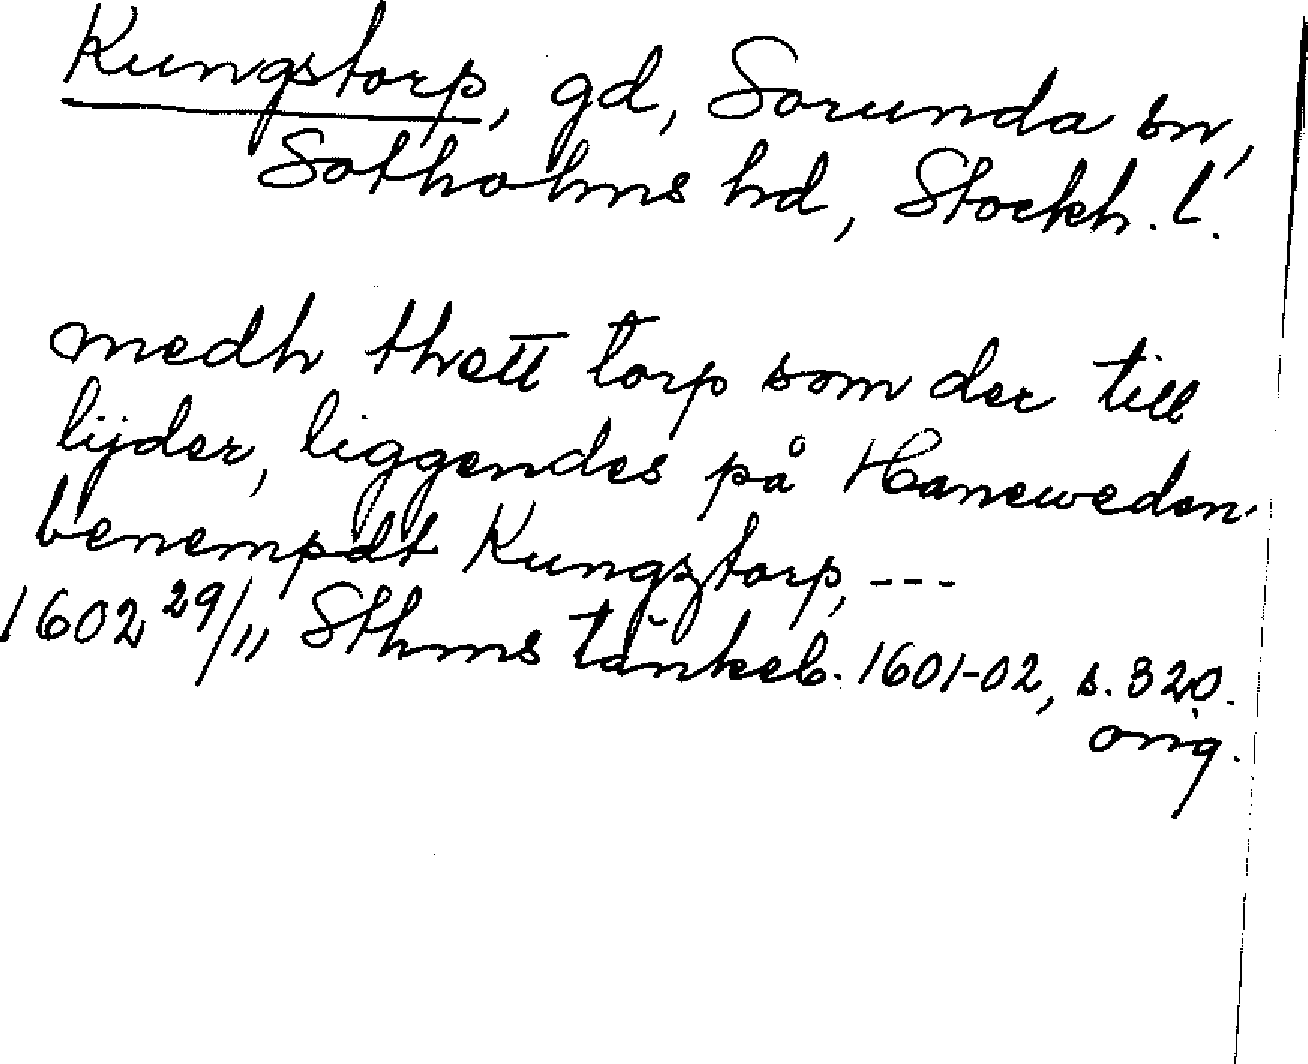 Kungstorp, gd, Sorunda sn,
Sotholms hd, Stockh. l.
medh thett torp som der till
lijder, liggendes på Haneweden
benempdt Kungztorp, ---
1602 29/11 Sthms tänkeb. 1601-02, s. 320.
orig.